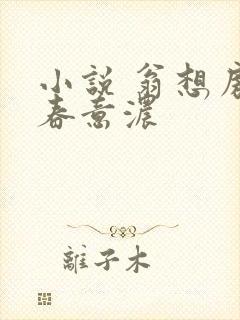 小説 翁想房
春意濃
離子木